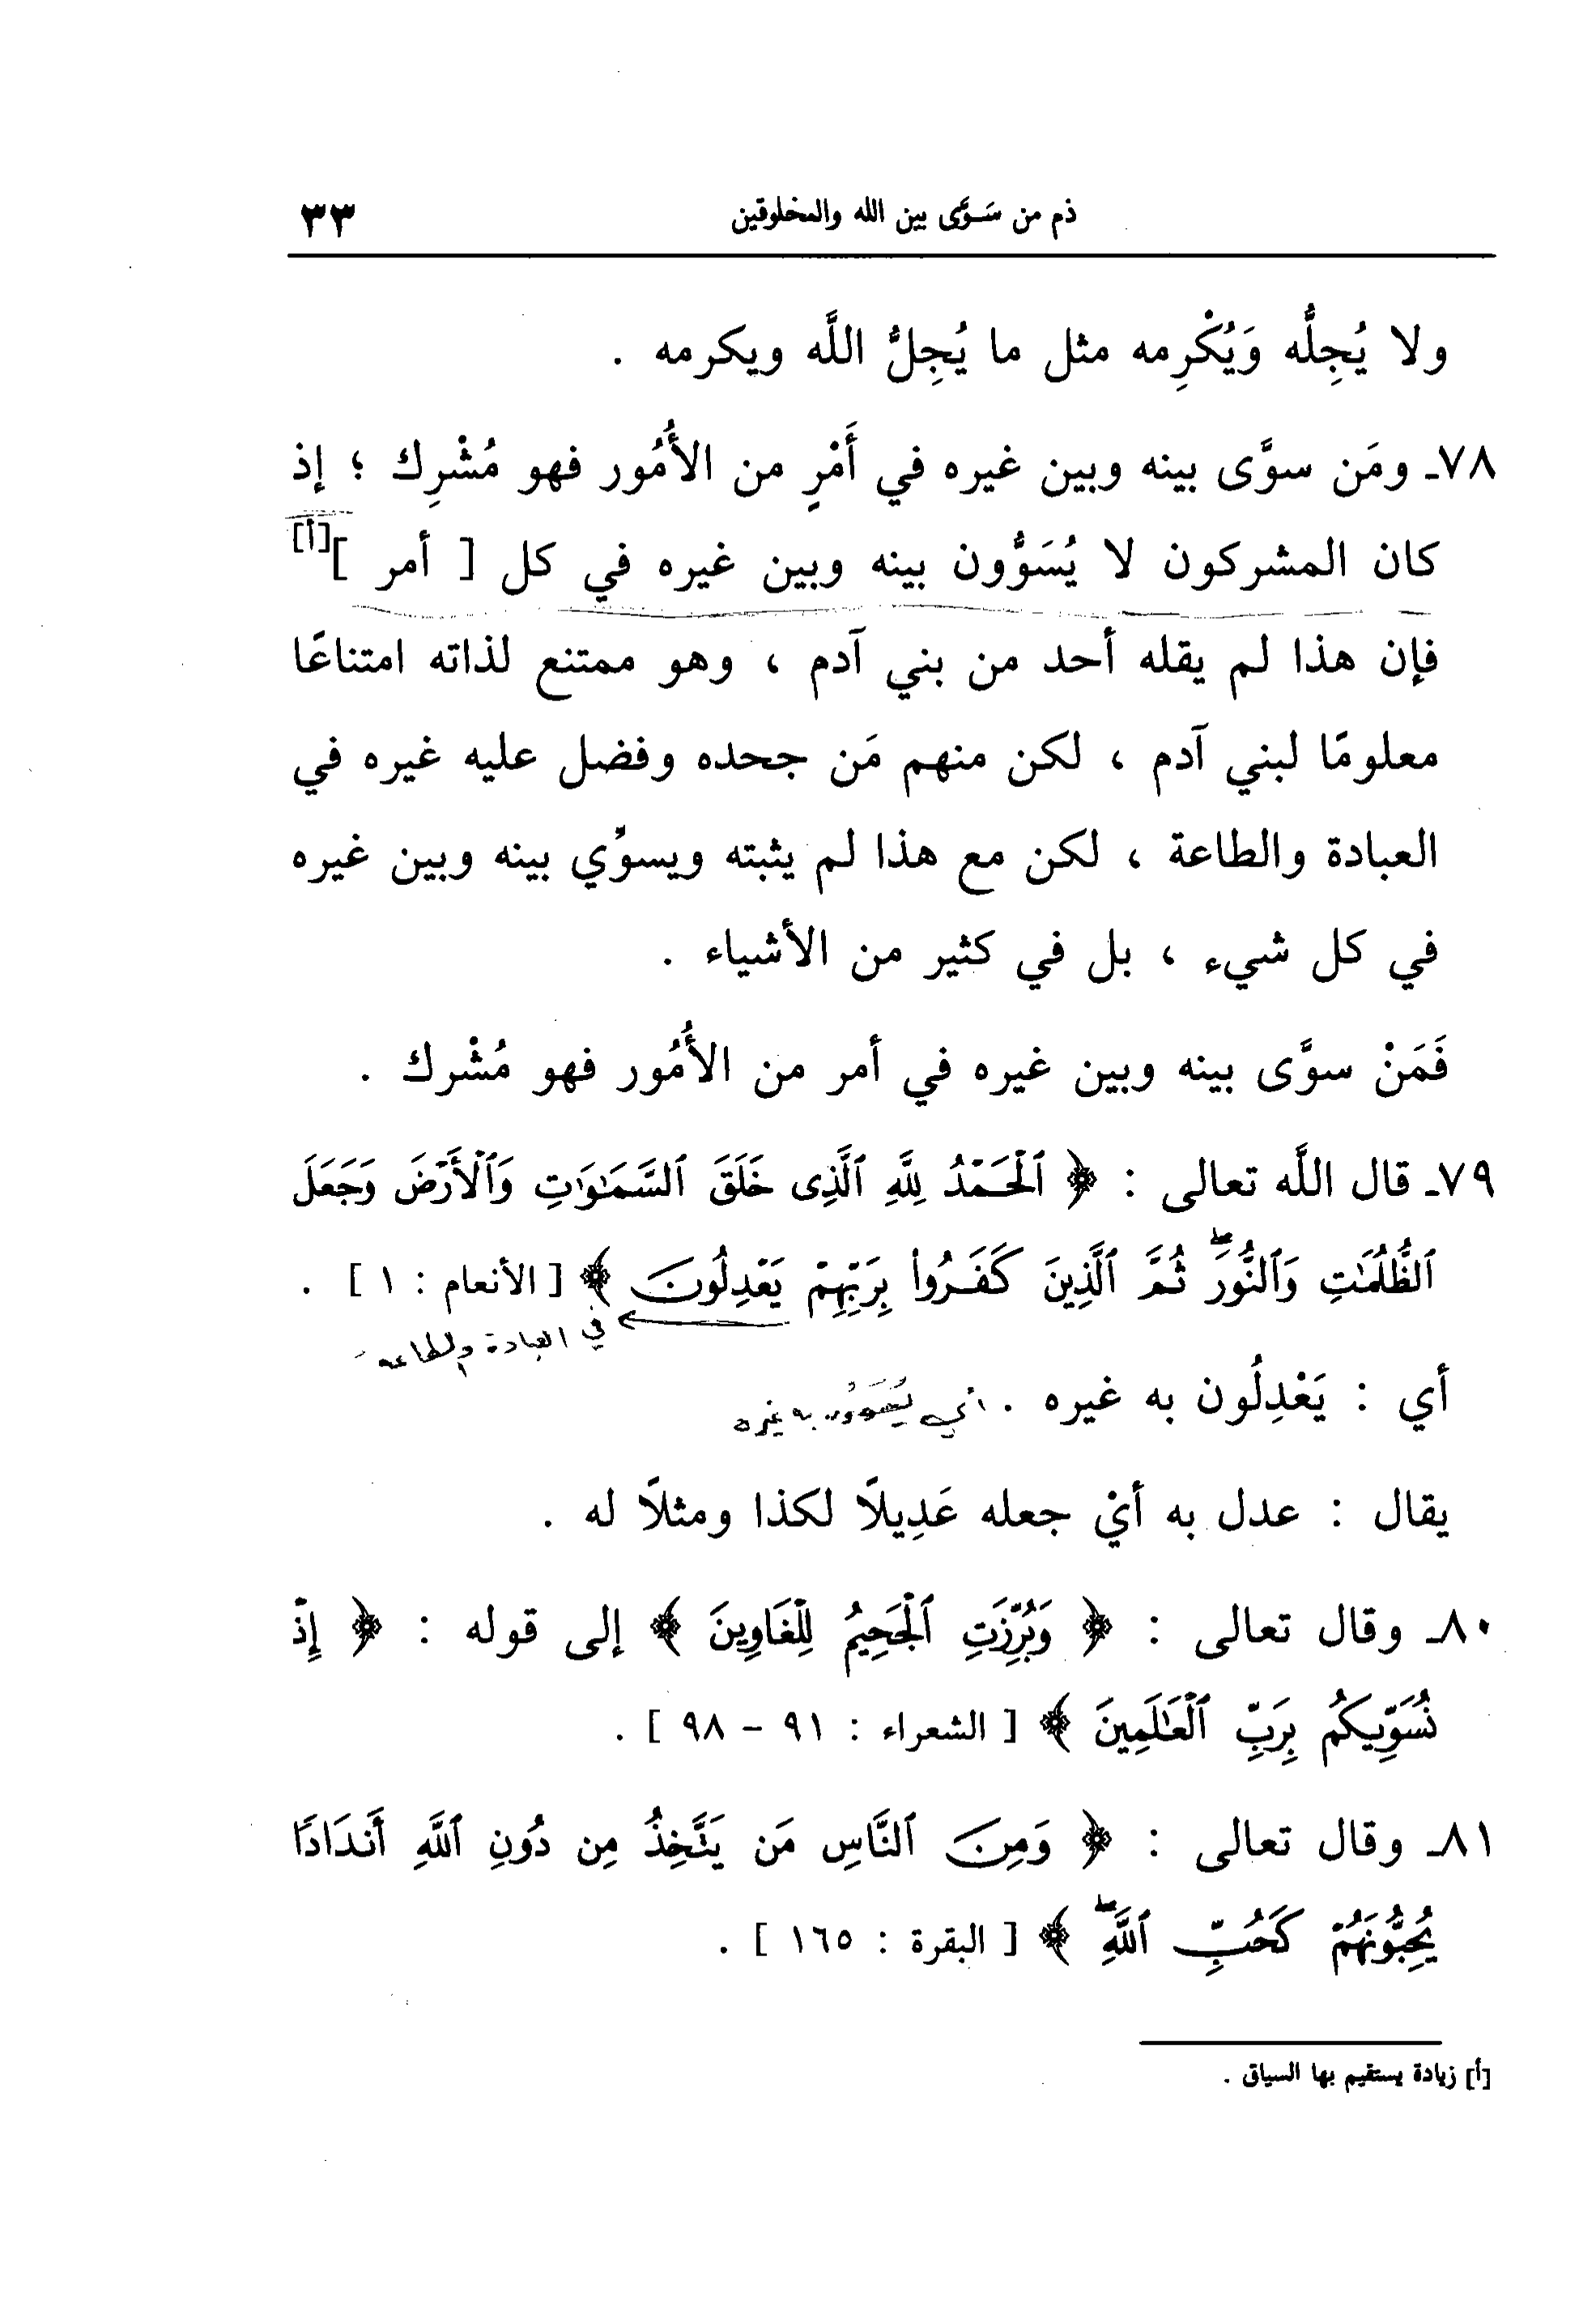 ذم من سَوَّى بين الله والمخلوقين ٣٣
ولا يُجِلُّه وَيُكْرِمه مثل ما يُجِلُّ اللَّه ويكرمه .
٧٨ـ ومَن سوَّى بينه وبين غيره في أَمْرٍ من الأُمُور فهو مُشْرِك ؛ إذ
كان المشركون لا يُسَوُّون بينه وبين غيره في كل [ أمر ][أ]
فإن هذا لم يقله أحد من بني آدم ، وهو ممتنع لذاته امتناعًا
معلومًا لبني آدم ، لكن منهم مَن جحده وفضل عليه غيره في
العبادة والطاعة ، لكن مع هذا لم يثبته ويسوِّي بينه وبين غيره
في كل شيء ، بل في كثير من الأشياء .
فَمَنْ سوَّى بينه وبين غيره في أمر من الأُمُور فهو مُشْرك .
٧٩ـ قال اللَّه تعالى : ﴿ ٱلْحَمْدُ لِلَّهِ ٱلَّذِى خَلَقَ ٱلسَّمَٰوَٰتِ وَٱلْأَرْضَ وَجَعَلَ
ٱلظُّلُمَٰتِ وَٱلنُّورَ ۖ ثُمَّ ٱلَّذِينَ كَفَرُوا۟ بِرَبِّهِمْ يَعْدِلُونَ ﴾ [ الأنعام : ١ ] .
في العبادة والطاعة
أي : يَعْدِلُون به غيره . أي يُسَوُّون به غيره
يقال : عدل به أيْ جعله عَدِيلًا لكذا ومثلًا له .
٨٠ـ وقال تعالى : ﴿ وَبُرِّزَتِ ٱلْجَحِيمُ لِلْغَاوِينَ ﴾ إلى قوله : ﴿ إِذْ
نُسَوِّيكُم بِرَبِّ ٱلْعَٰلَمِينَ ﴾ [ الشعراء : ٩١ – ٩٨ ] .
٨١ـ وقال تعالى : ﴿ وَمِنَ ٱلنَّاسِ مَن يَتَّخِذُ مِن دُونِ ٱللَّهِ أَندَادًا
يُحِبُّونَهُمْ كَحُبِّ ٱللَّهِ ۖ ﴾ [ البقرة : ١٦٥ ] .
[أ] زيادة يستقيم بها السياق .